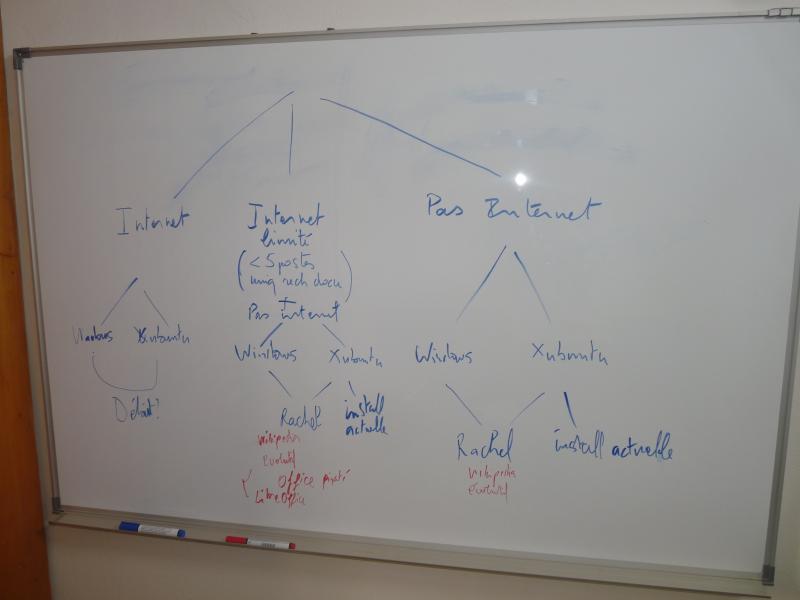 Internet
Internet
limité
(< 5 postes
uniq rech docu)
+
Pas internet
Pas Internet
Windows Xubuntu
Windows Xubuntu
Windows Xubuntu
Débit?
Rachel
install
actuelle
wikipedia
évolutif
Office piraté
LibreOffice
Rachel
install actuelle
wikipedia
évolutif